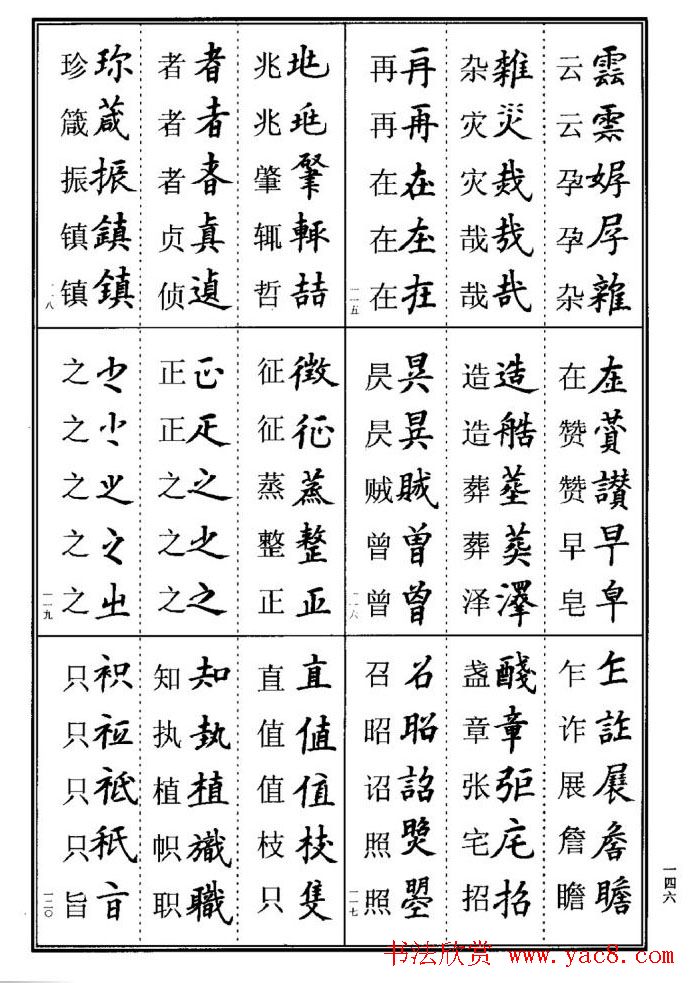 雲雲孕孕雜
云云孕孕杂
雜災烖哉哉
杂灾灾哉哉
再再在在在
再再在在在
一一五
在賛讚早皁
在赞赞早皂
造艁塟葬澤
造造葬葬泽
昃昃賊曾曾
昃昃贼曾曾
一一六
乍詐展詹瞻
乍诈展詹瞻
醆章張宅招
盏章张宅招
召昭詔照曌
召昭诏照照
一一七
兆兆肇輒喆
兆兆肇辄哲
者者者真遉
者者者贞侦
珍葴振鎮鎮
珍箴振镇镇
一一八
徵征蒸整正
征征蒸整正
正疋之之之
正正之之之
之之之之㞢
之之之之之
一一九
直值值枝隻
直值值枝只
知執植旘職
知执植帜职
只只只只旨
一二〇
一四六
书法欣赏 www.yac8.com